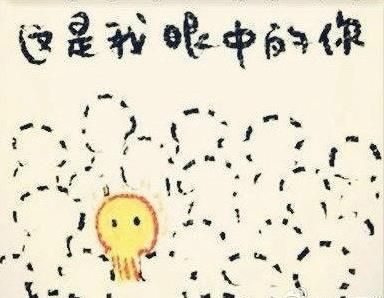 这是我眼中的你